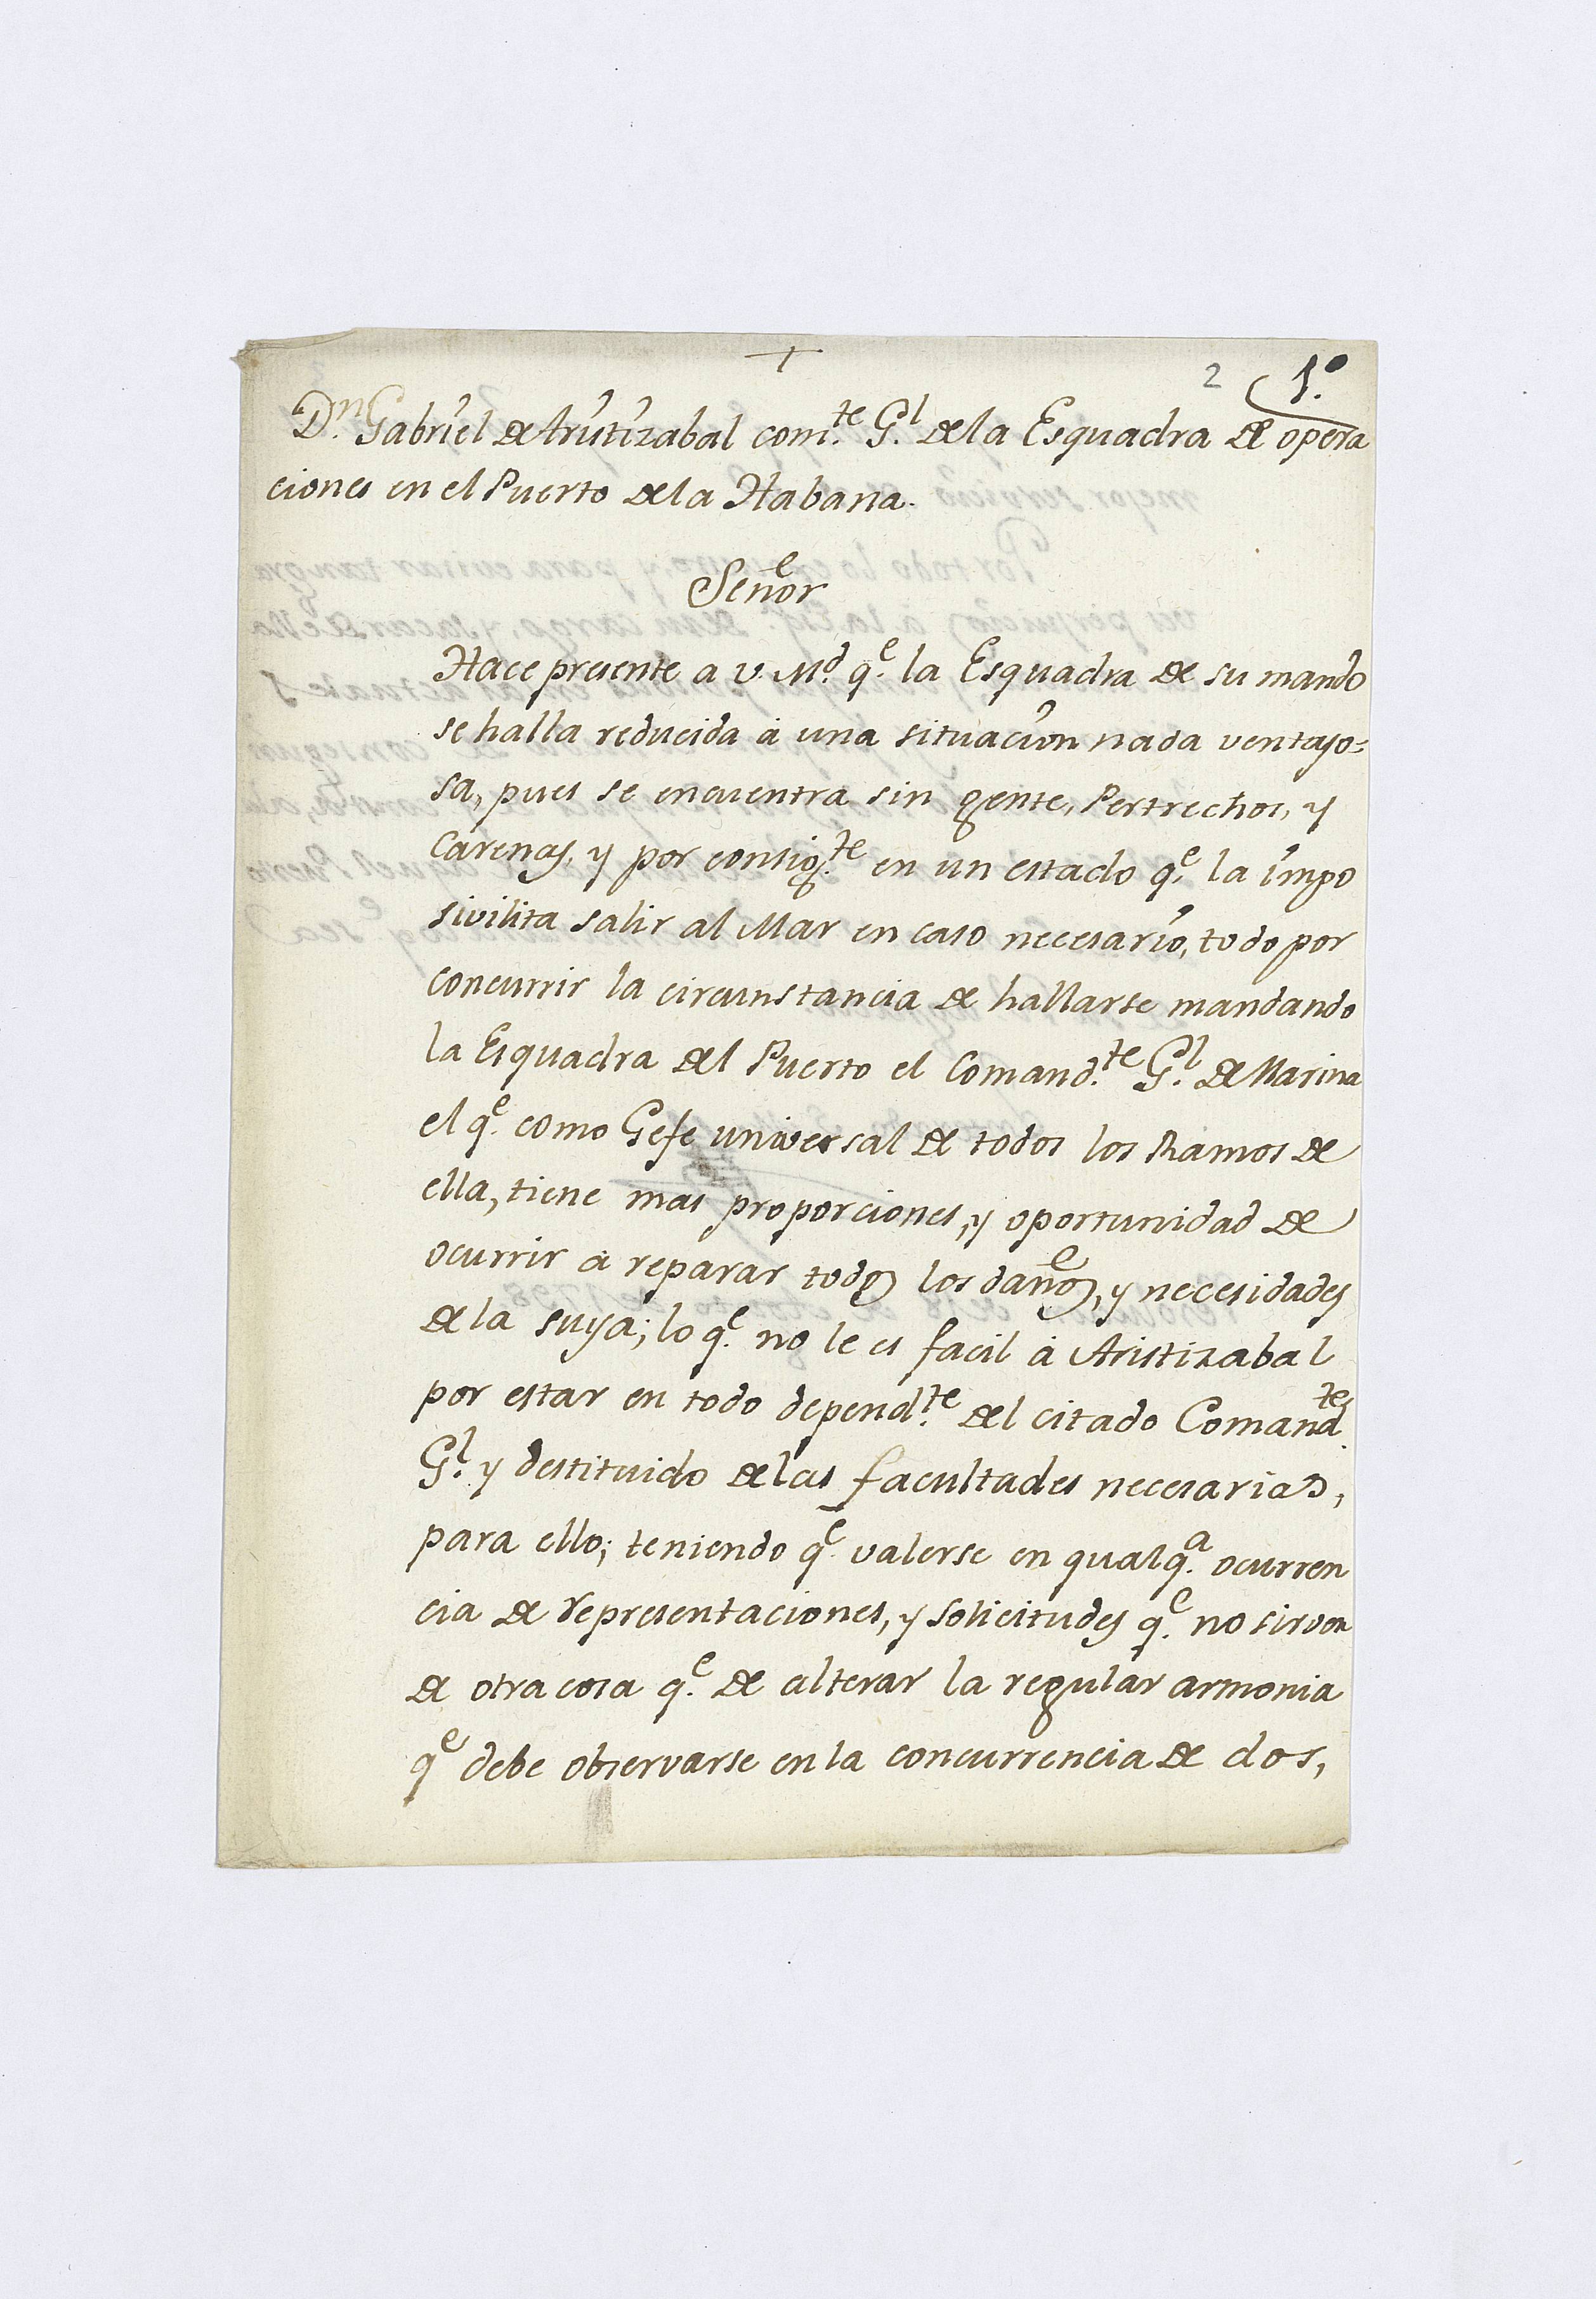 +
2 1.º
D.ⁿ Gabriel de Aristizabal com.te G.l de la Esquadra de opera
ciones en el Puerto de la Habana.
Señor
Hace presente a V. M.d q.e la Esquadra de su mando
se halla reducida à una situacion nada ventajo=
sa, pues se encuentra sin gente, Pertrechos, y
Carenas, y por consig.te en un estado q.e la impo
sivilita salir al Mar en caso necesario, todo por
concurrir la circunstancia de hallarse mandando
la Esquadra del Puerto el Comand.te G.l de Marina
el q.e como Gefe universal de todos los Ramos de
ella, tiene mas proporciones, y oportunidad de
ocurrir à reparar todos los daños, y necesidades
de la suya; lo q.e no le es facil à Aristizabal
por estar en todo depend.te del citado Comand.te
G.l y destituido de las facultades necesarias,
para ello; teniendo q.e valerse en qualq.a ocurren
cia de representaciones, y solicitudes q.e no sirven
de otra cosa q.e de alterar la regular armonia
q.e debe observarse en la concurrencia de dos,